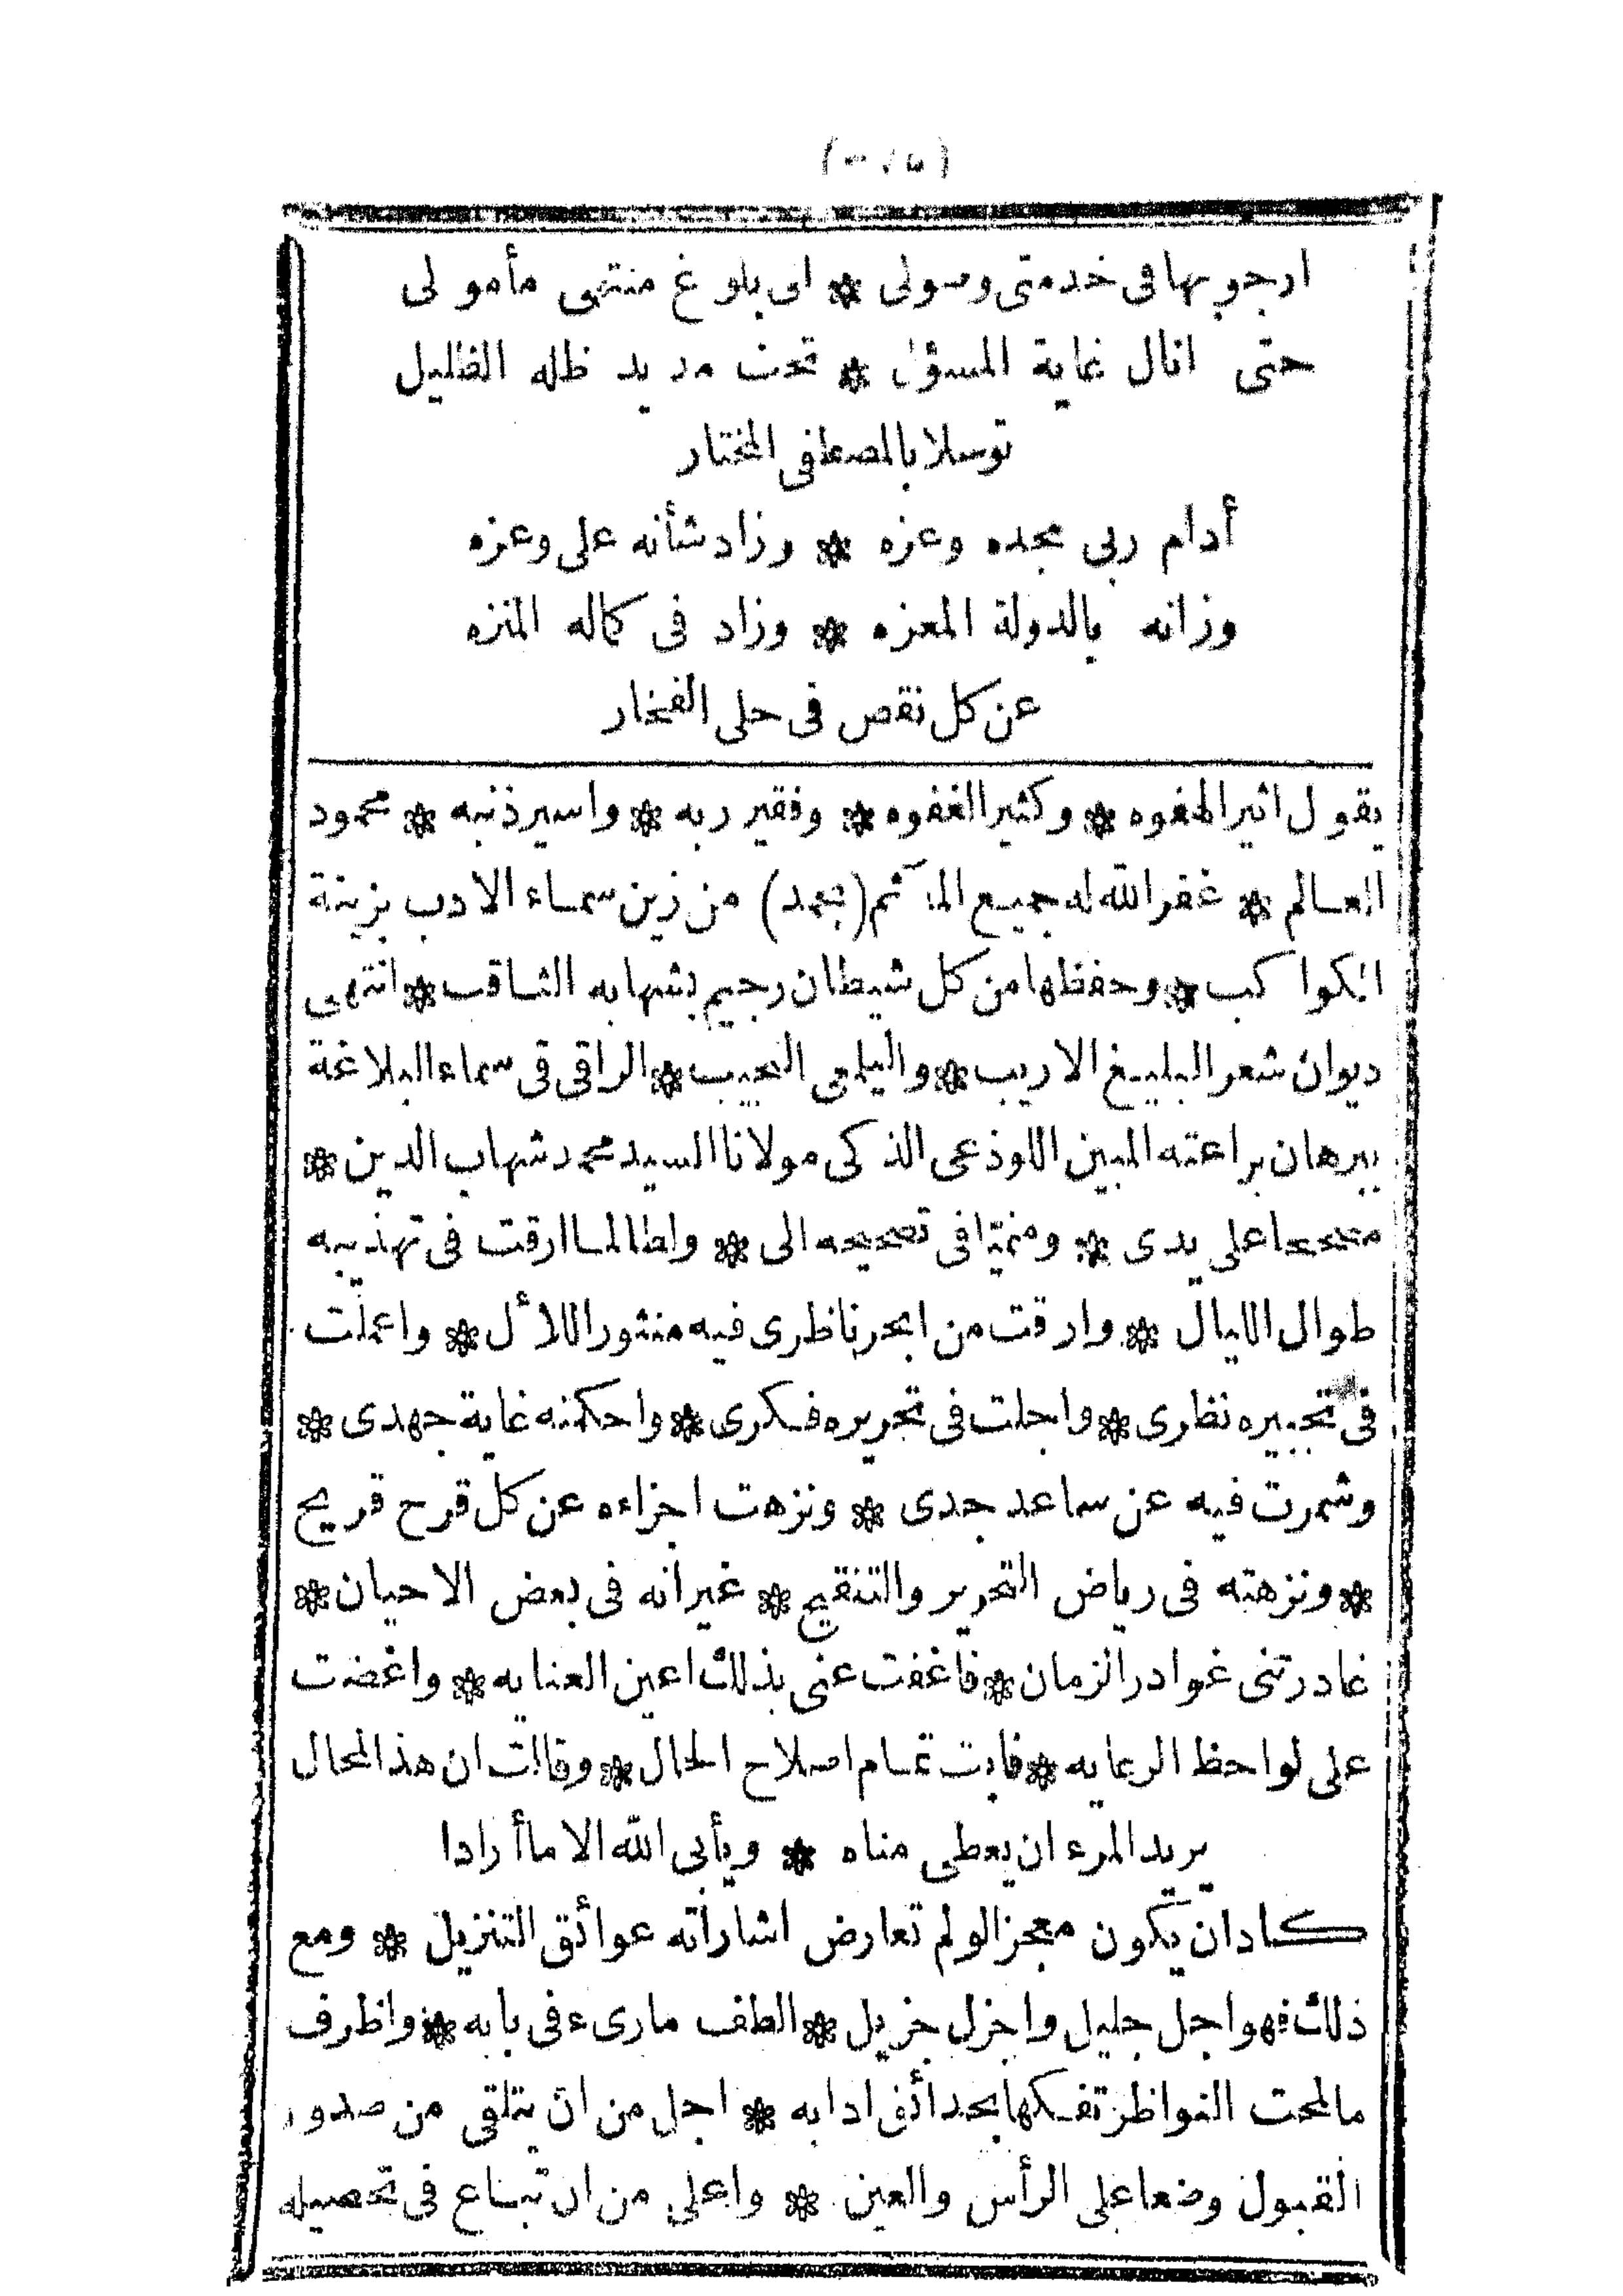 ارجو بها فى خدمتى وصولى * الى بلوغ منتهى مأمولى
حتى انال غاية المسؤل * تحت مديد ظله الظليل
توسلا بالمصطفى المختار
أدام ربى مجده وعزه * وزاد شأنه على وعزه
وزانه بالدولة المعزه * وزاد فى كماله المنزه
عن كل نقص فى حلى الفخار
يقول اثير الهفوه * وكثير الغفوه * وفقير ربه * واسير ذنبه * محمود
العالم * غفر الله له جميع المآثم (بحمد) من زين سماء الادب بزينة
الكواكب * وحفظها من كل شيطان رجيم بشهابه الثاقب * انتهى
ديوان شعر البليغ الاريب * واليلمعى النجيب * الراقى فى سماء البلاغة
ببرهان براعته المبين اللوذعى الذكى مولانا السيد محمد شهاب الدين *
مصححا على يدى * ومنتميا فى تصحيحه الى * ولطالما ارقت فى تهذيبه
طوال الليال * وارقت من ابحر ناظرى فيه منثور اللأل * واعملت
فى تحبيره نظرى * واجلت فى تحريره فكرى * واحكمته غاية جهدى *
وشمرت فيه عن ساعد جدى * ونزهت اجزاءه عن كل قرح قريح
* ونزهته فى رياض التحرير والتنقيح * غير انه فى بعض الاحيان *
غادرتنى غوادر الزمان * فاغفت عنى بذلك اعين العنايه * واغضت
على لواحظ الرعايه * فابت تمام اصلاح الحال * وقالت ان هذا لمحال
يريد المرء ان يعطى مناه * ويأبى الله الا ما أرادا
كاد ان يكون معجزا لو لم تعارض اشاراته عوائق التنزيل * ومع
ذلك فهو اجل جليل واجزل جزيل * الطف ما رىء فى بابه * واظرف
ما لمحت النواظر تفكها بحدائق ادابه * اجل من ان يتلقى من صدور
القبول وضعا على الرأس والعين * واعلى من ان تباع فى تحصيله